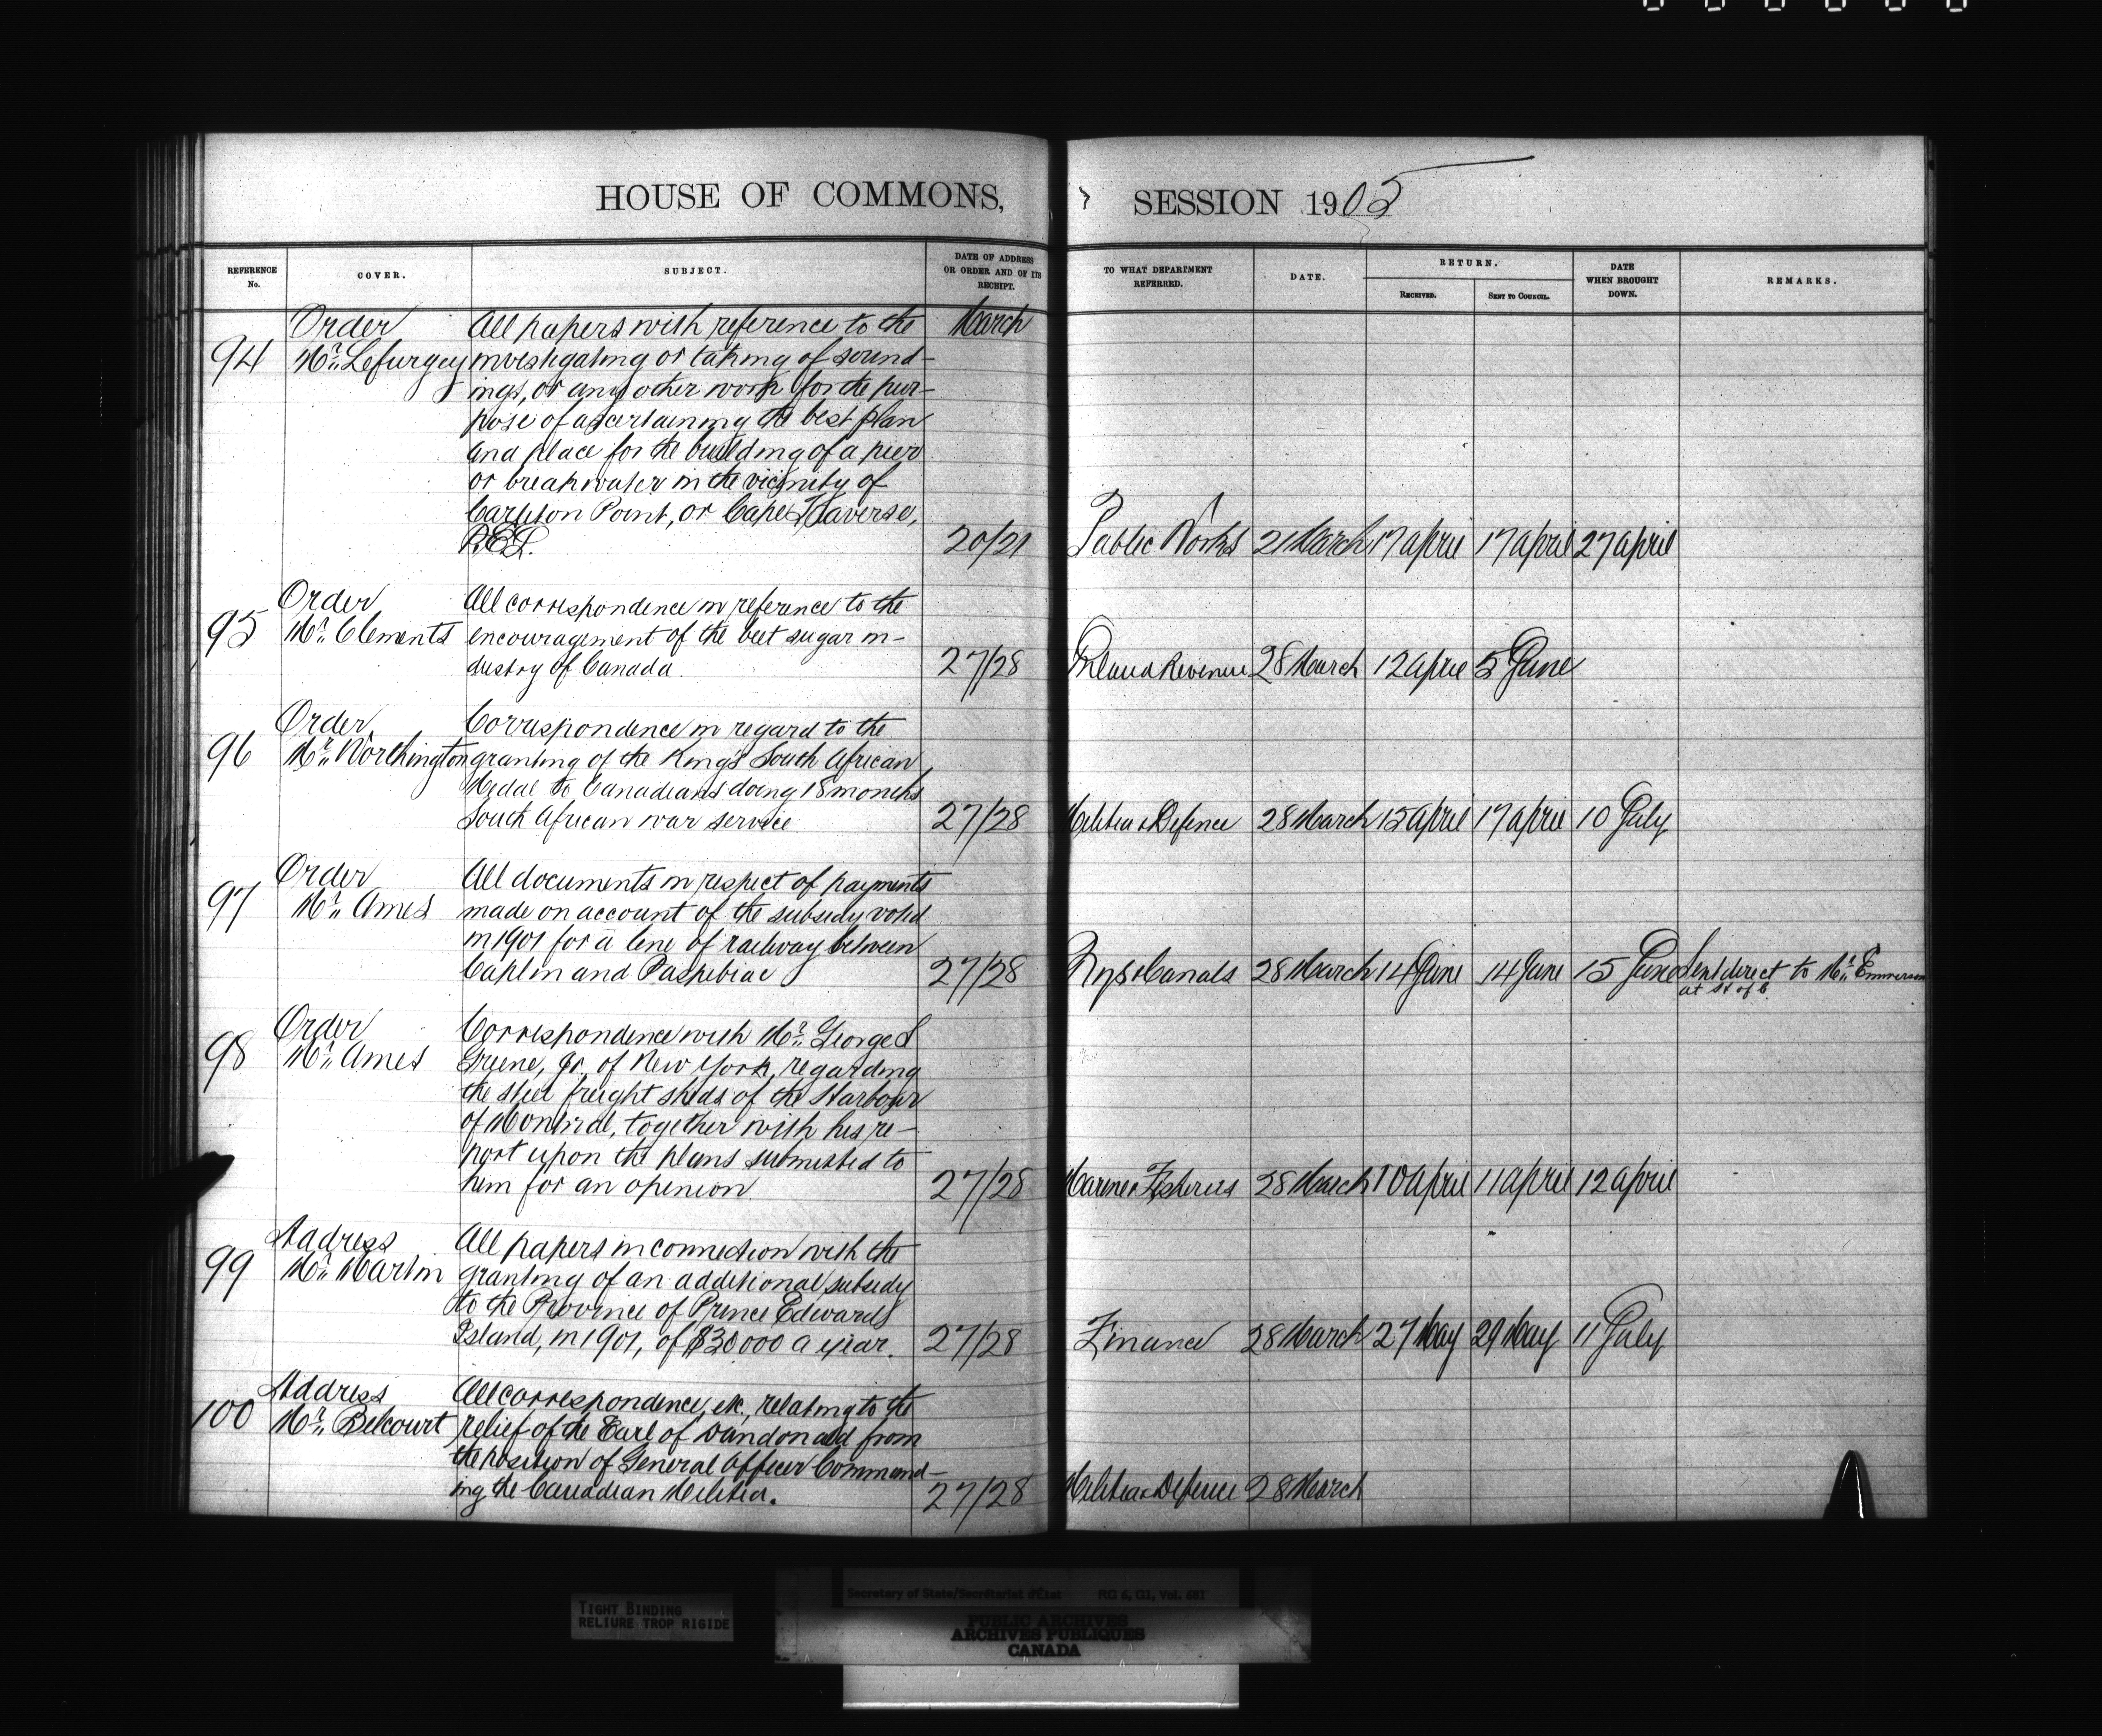 HOUSE OF COMMONS, SESSION 1905
REFERENCE No. COVER. SUBJECT. DATE OF ADDRESS OR ORDER AND OF ITS RECEIPT. TO WHAT DEPARTMENT REFERRED. DATE. RETURN. RECEIVED. SENT TO COUNCIL. DATE WHEN BROUGHT DOWN. REMARKS.
Order All papers with reference to the March
94 Mr. Lefurgey investigating or taking of sound-
ings, or any other work for the pur-
pose of ascertaining the best plan
and place for the building of a pier
or breakwater in the vicinity of
Carleton Point, or Cape Traverse,
P.E.I. 20/21 Public Works 21 March 17 April 17 April 27 April
Order All correspondence in reference to the
95 Mr. Clements encouragement of the beet sugar in-
dustry of Canada. 27/28 Inland Revenue 28 March 12 April 5 June
Order Correspondence in regard to the
96 Mr. Worthington granting of the King's South African
Medal to Canadians doing 18 months
South African war service 27/28 Militia & Defence 28 March 15 April 17 April 10 July
Order All documents in respect of payments
97 Mr. Ames made on account of the subsidy voted
in 1901 for a line of railway between
Caplin and Paspebiac 27/28 Rys & Canals 28 March 14 June 14 June 15 June Sent direct to Mr. Emmerson
at H of C.
Order Correspondence with Mr. George S
98 Mr. Ames Greene, Jr. of New York, regarding
the steel freight sheds of the Harbour
of Montreal, together with his re-
port upon the plans submitted to
him for an opinion 27/28 Marine & Fisheries 28 March 10 April 11 April 12 April
Address All papers in connection with the
99 Mr. Martin granting of an additional subsidy
to the Province of Prince Edward
Island, in 1901, of $30000 a year. 27/28 Finance 28 March 27 May 29 May 11 July
Address All correspondence, etc., relating to the
100 Mr. Belcourt relief of the Earl of Dundonald from
the position of General Officer Command-
ing the Canadian Militia. 27/28 Militia & Defence 28 March
Secretary of State/Secrétariat d'État RG 6, D1, Vol. 681
TIGHT BINDING
RELIURE TROP RIGIDE
PUBLIC ARCHIVES
ARCHIVES PUBLIQUES
CANADA